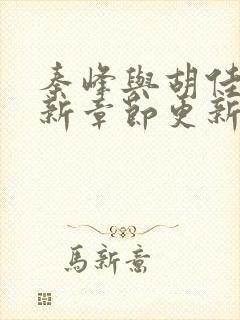 秦峰與胡佳
新章節更新
馬新意